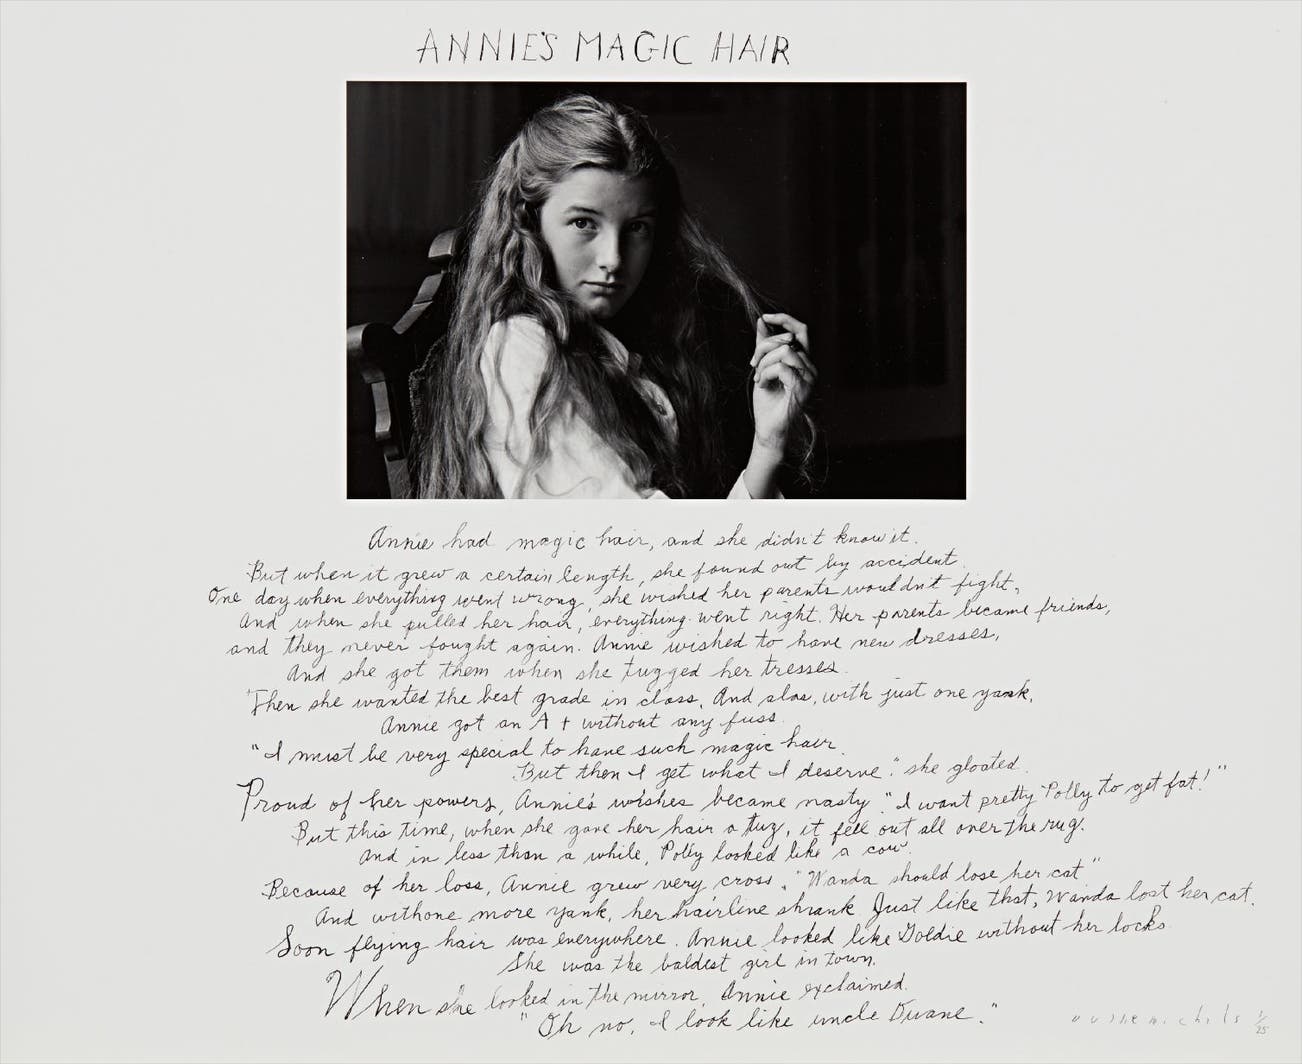 ANNIE'S MAGIC HAIR
Annie had magic hair, and she didn't know it.
But when it grew a certain length, she found out by accident.
One day when everything went wrong, she wished her parents wouldn't fight,
And when she pulled her hair, everything went right. Her parents became friends,
and they never fought again. Annie wished to have new dresses,
And she got them when she tugged her tresses.
Then she wanted the best grade in class, And alas, with just one yank,
Annie got an A+ without any fuss.
"I must be very special to have such magic hair.
But then I get what I deserve." she gloated.
Proud of her powers, Annie's wishes became nasty. "I want pretty Polly to get fat!"
But this time, when she gave her hair a tug, it fell out all over the rug.
And in less than a while, Polly looked like a cow.
Because of her loss, Annie grew very cross. "Wanda should lose her cat"
And withone more yank, her hairline shrank. Just like that, Wanda lost her cat.
Soon flying hair was everywhere. Annie looked like Goldie without her locks.
She was the baldest girl in town.
When she looked in the mirror, Annie exclaimed.
"Oh no, I look like uncle Duane."
duane michals 3/25